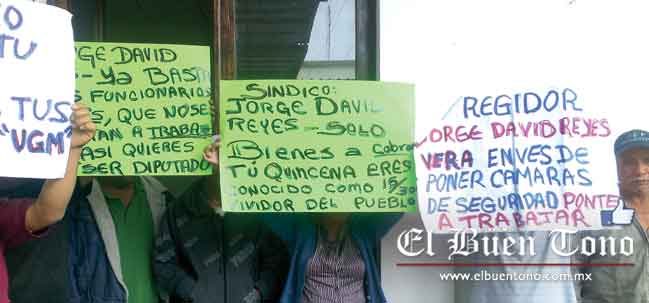 O
TU
TUS
"VGM"
RGE DAVID
YA BASTA
FUNCIONARIOS
S, QUE NO SE
AN A TRABA
ASI QUIERES
SER DIPUTADO
SINDICO:
JORGE DAVID
REYES - SOLO
BIENES A COBRAR
TÚ QUINCENA ERES
CONOCIDO COMO 15/30
VIVIDOR DEL PUEBLO
REGIDOR
JORGE DAVID REYES
VERA ENVES DE
PONER CAMARAS
DE SEGURIDAD PONTE
A TRABAJAR
El Buen Tono
www.elbuentono.com.mx